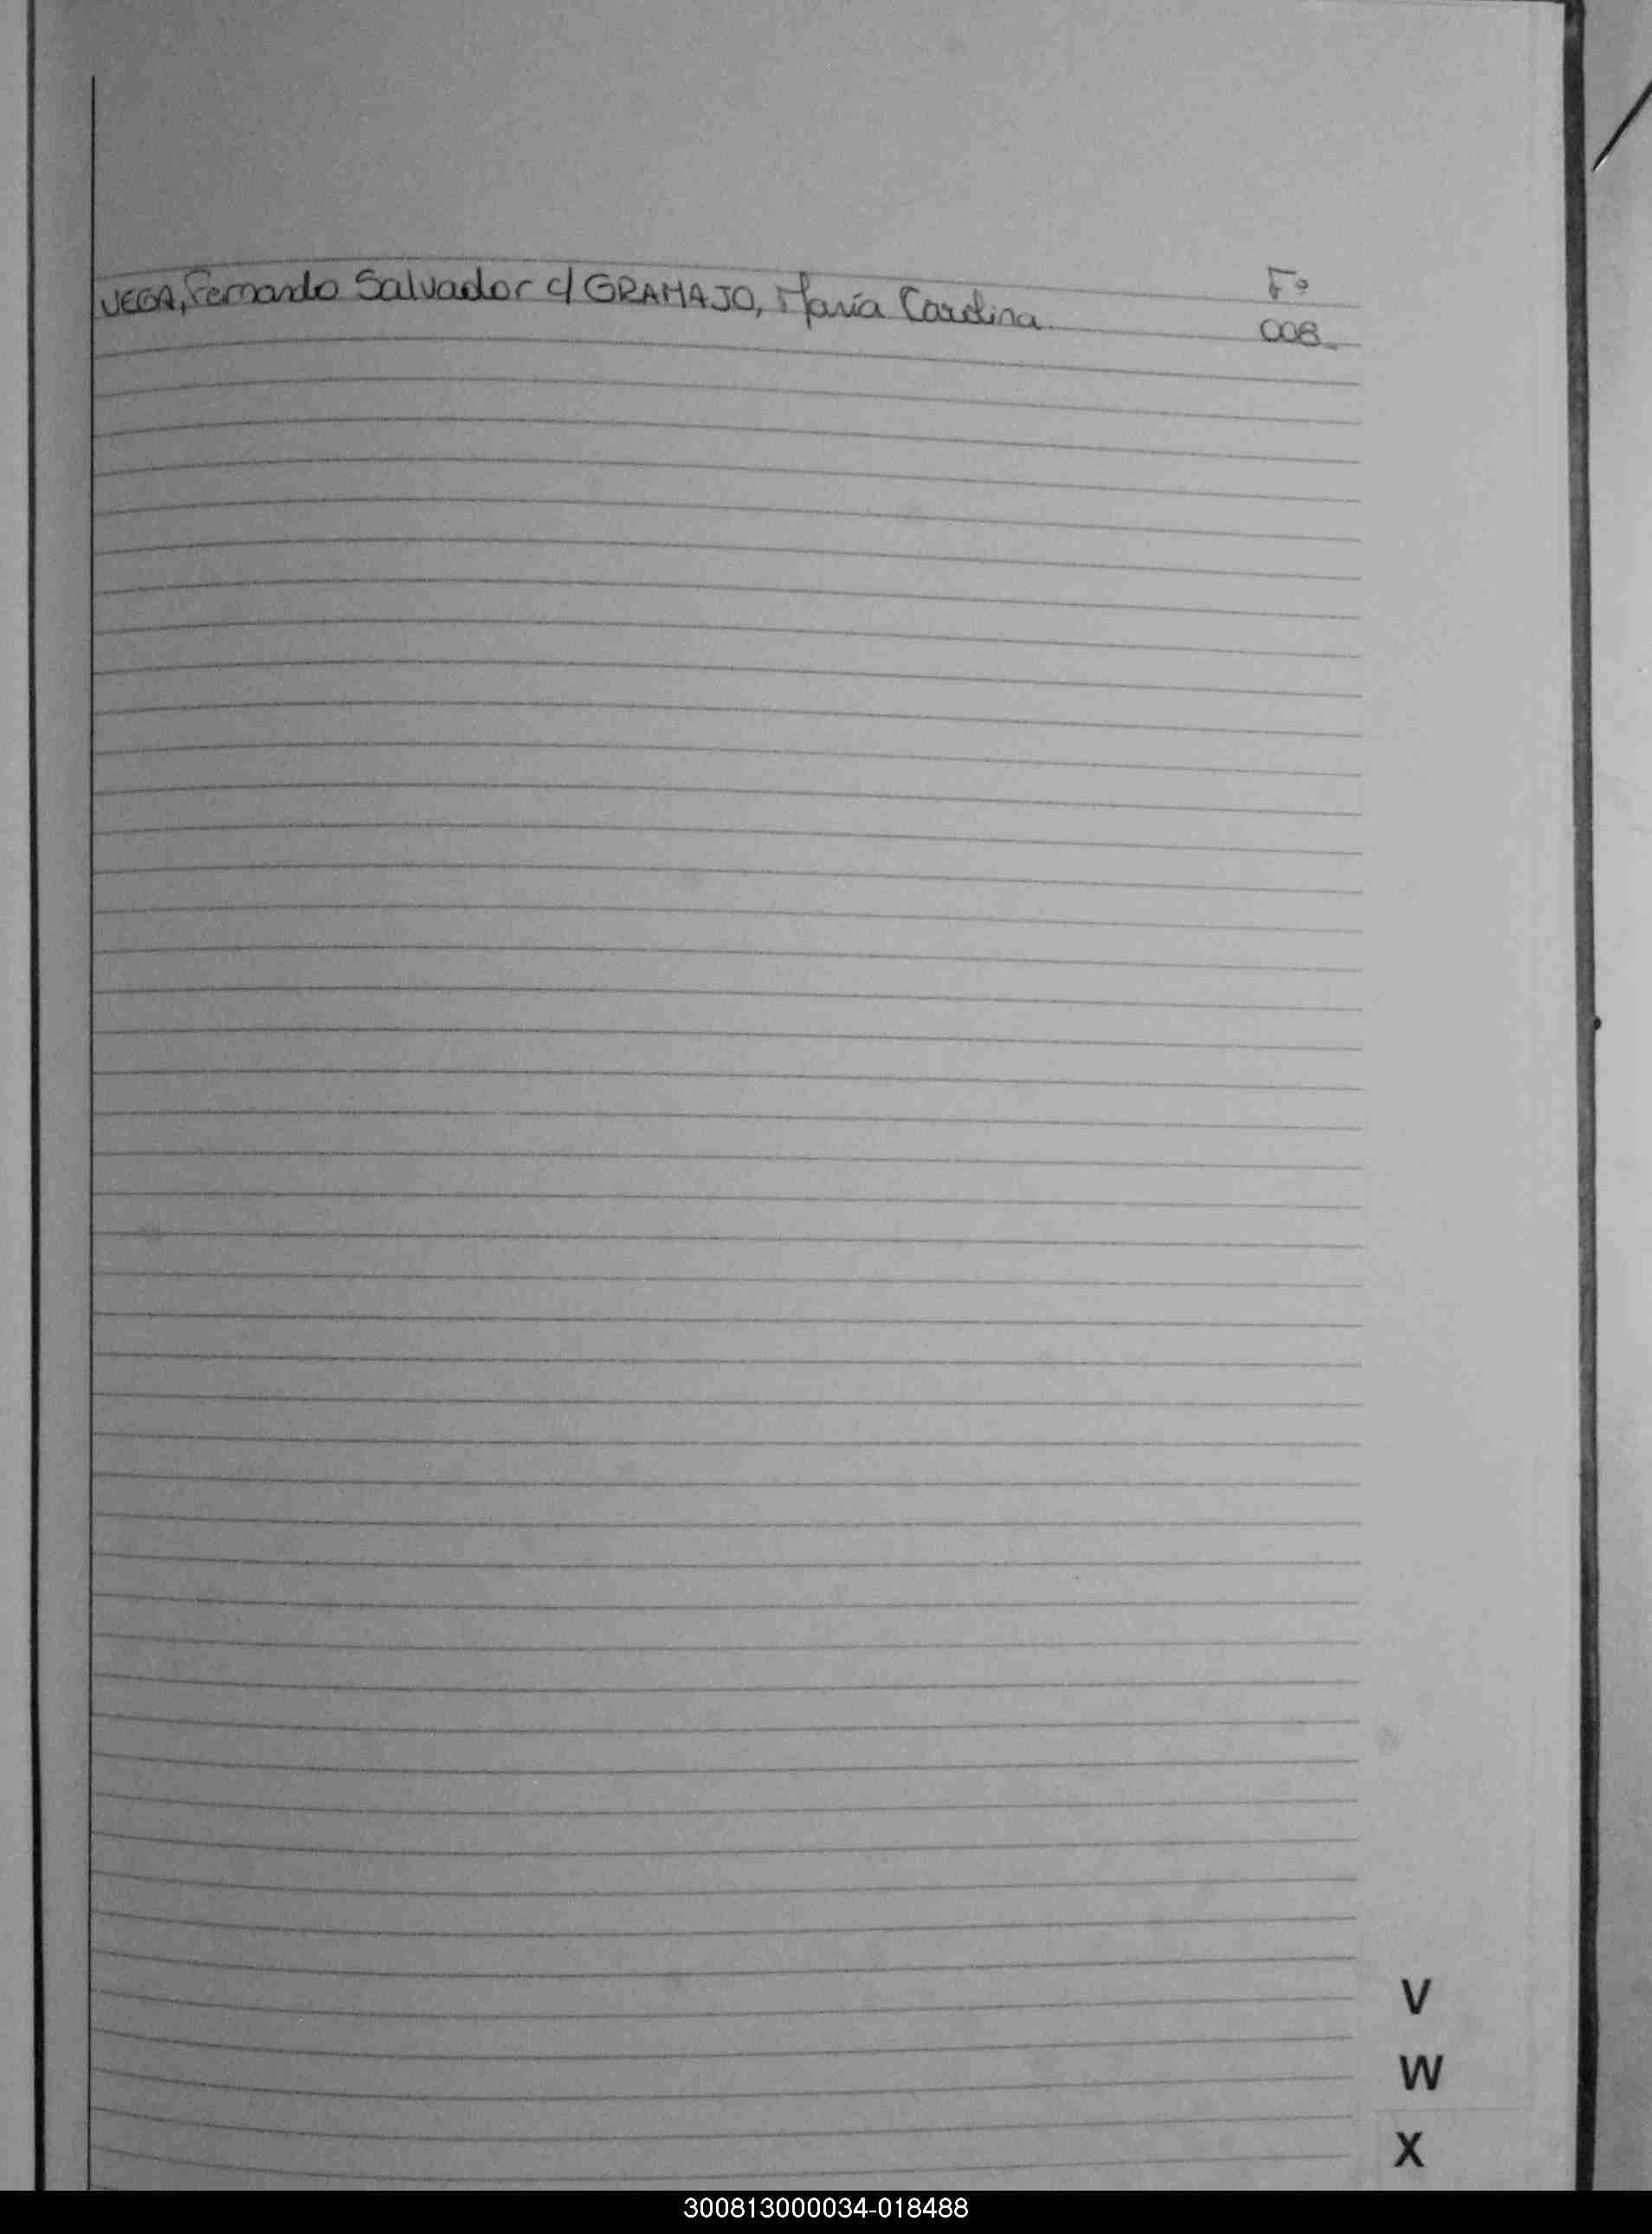 Fº
VEGA, Fernando Salvador c/ GRAMAJO, María Carolina 008
V
W
X
300813000034-018488